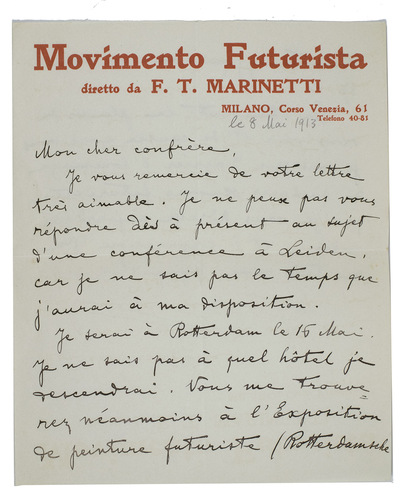 Movimento Futurista
diretto da F. T. MARINETTI
MILANO, Corso Venezia, 61
Telefono 40-81
le 8 Mai 1913
Mon cher confrère,
Je vous remercie de votre lettre
très aimable. Je ne peux pas vous
répondre dès à présent au sujet
d'une conférence à Leiden,
car je ne sais pas le temps que
j'aurai à ma disposition.
Je serai à Rotterdam le 15 Mai.
Je ne sais pas à quel hôtel je
descendrai. Vous me trouve-
rez néanmoins à l'Exposition
de peinture futuriste (Rotterdamsche